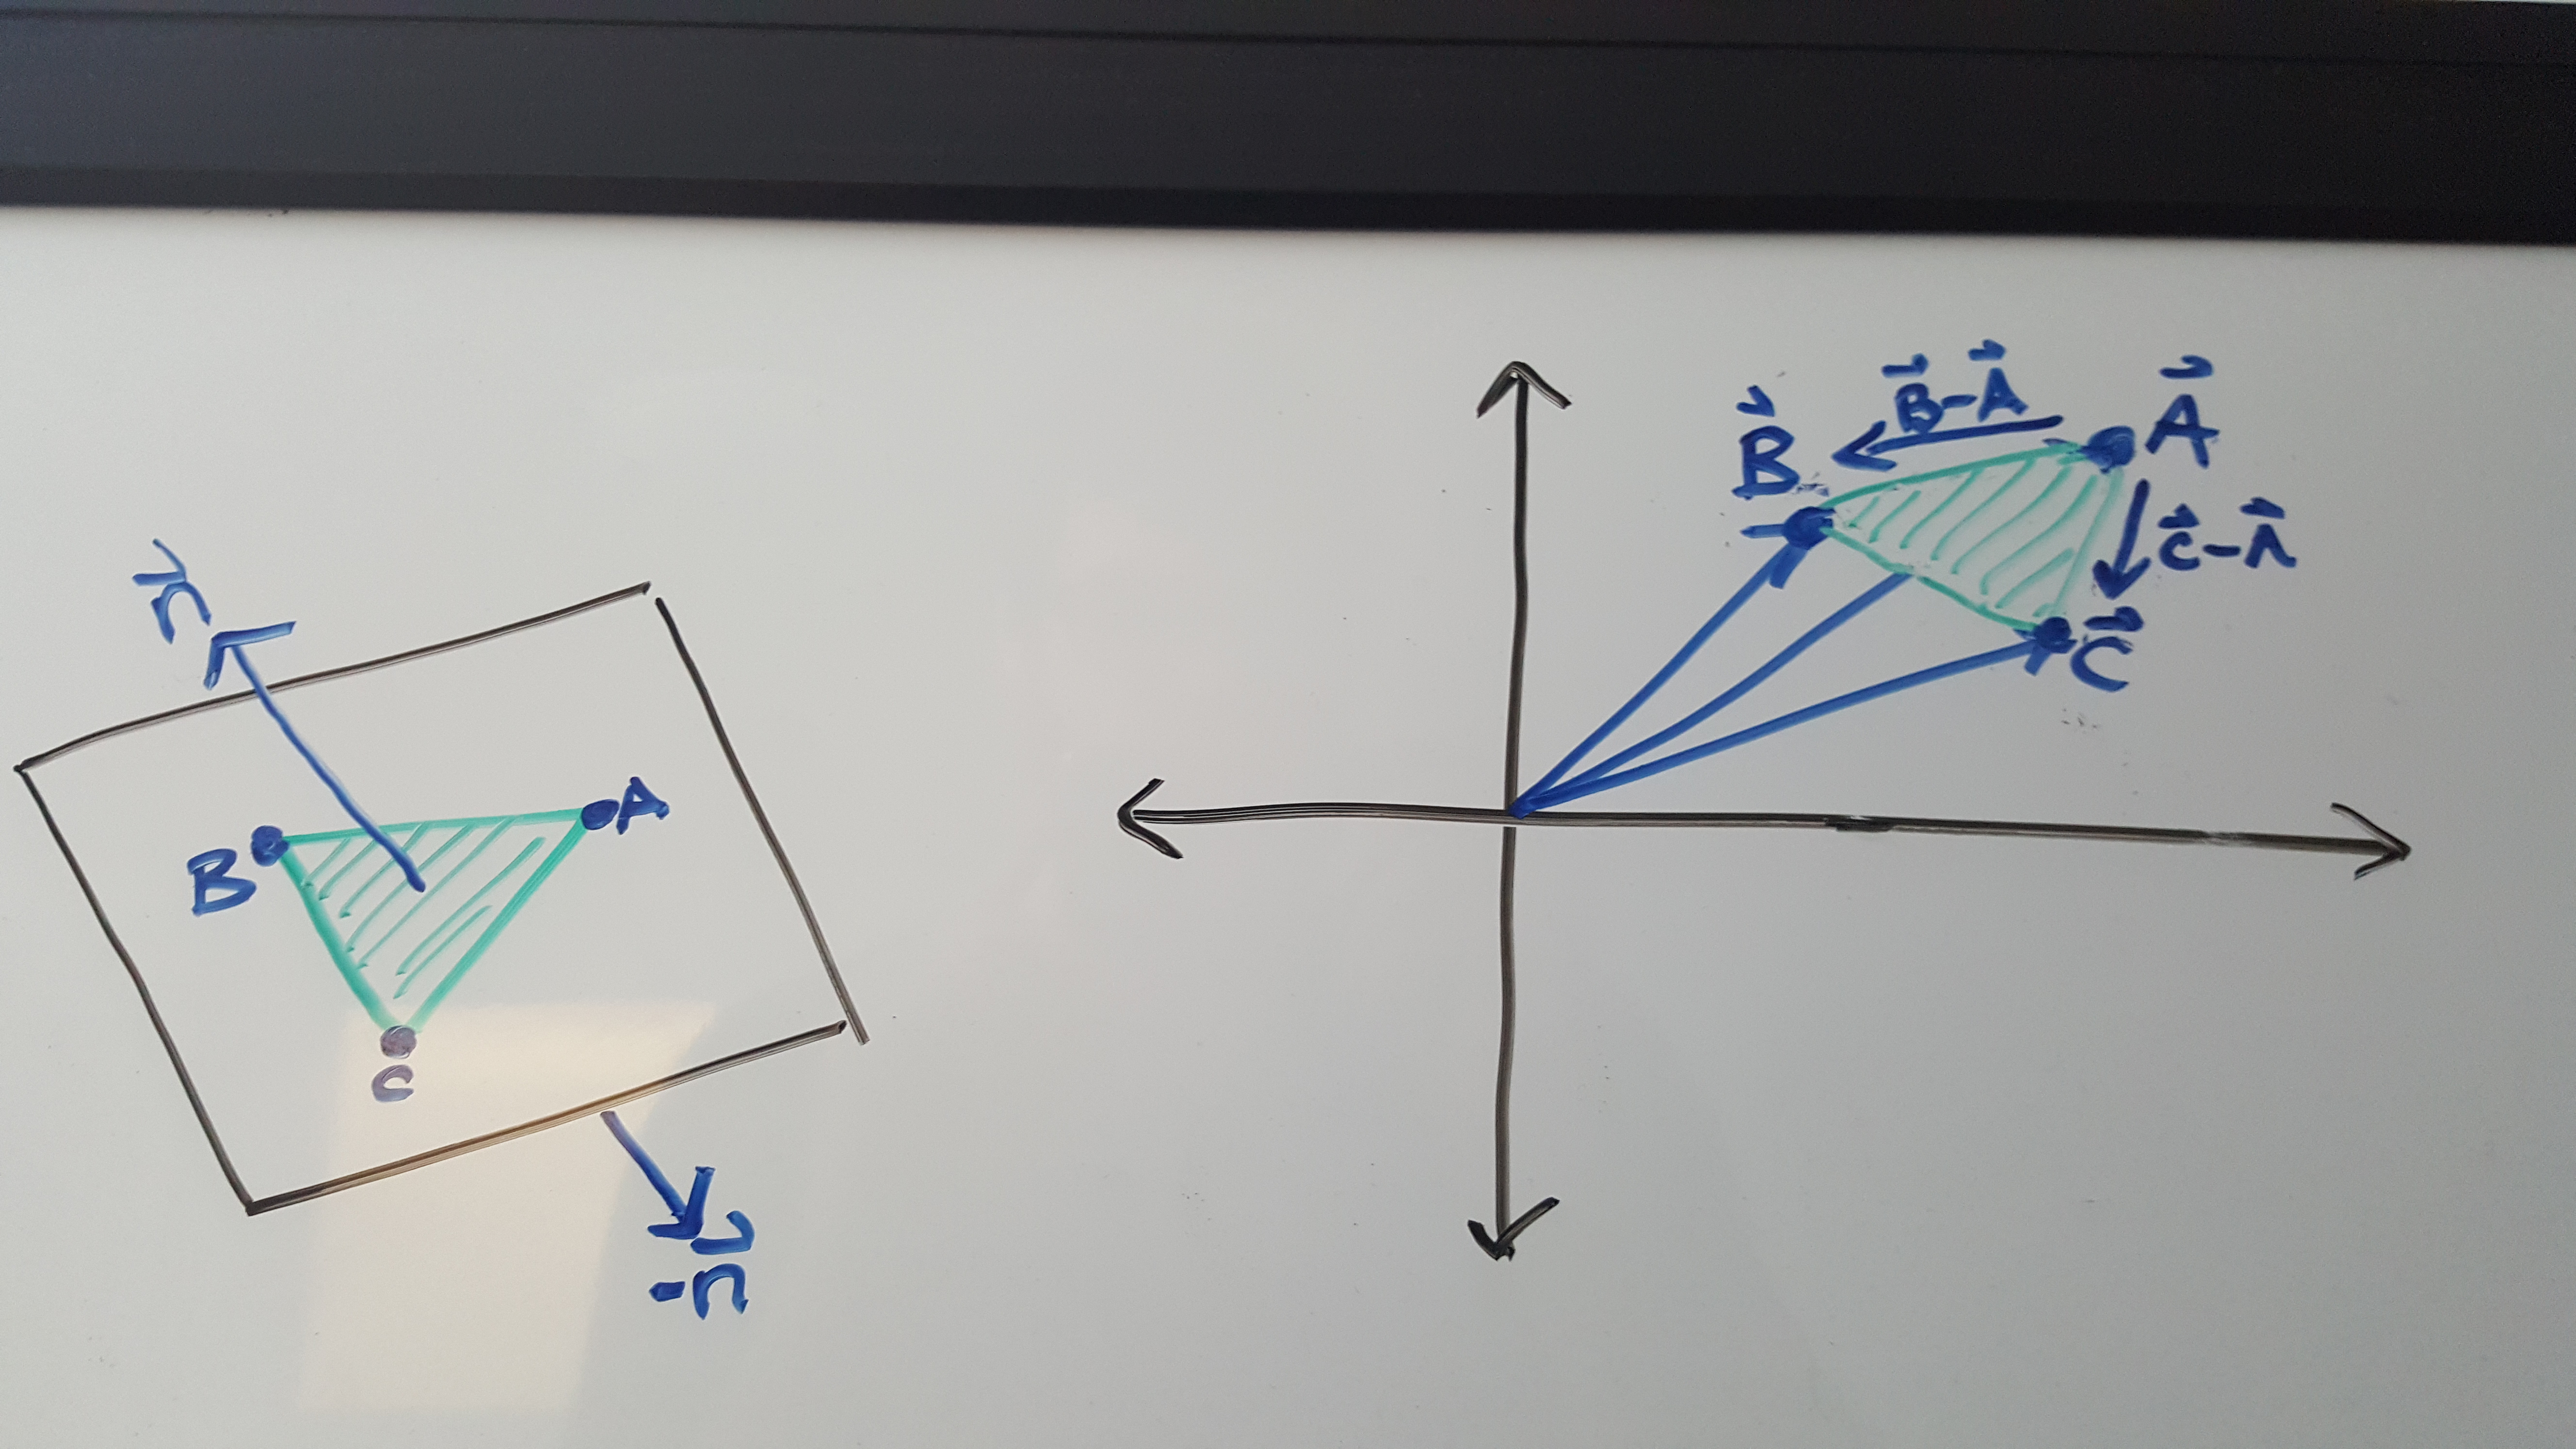 n⃗
B
A
C
-n⃗
B⃗
B⃗-A⃗
A⃗
C⃗-A⃗
C⃗